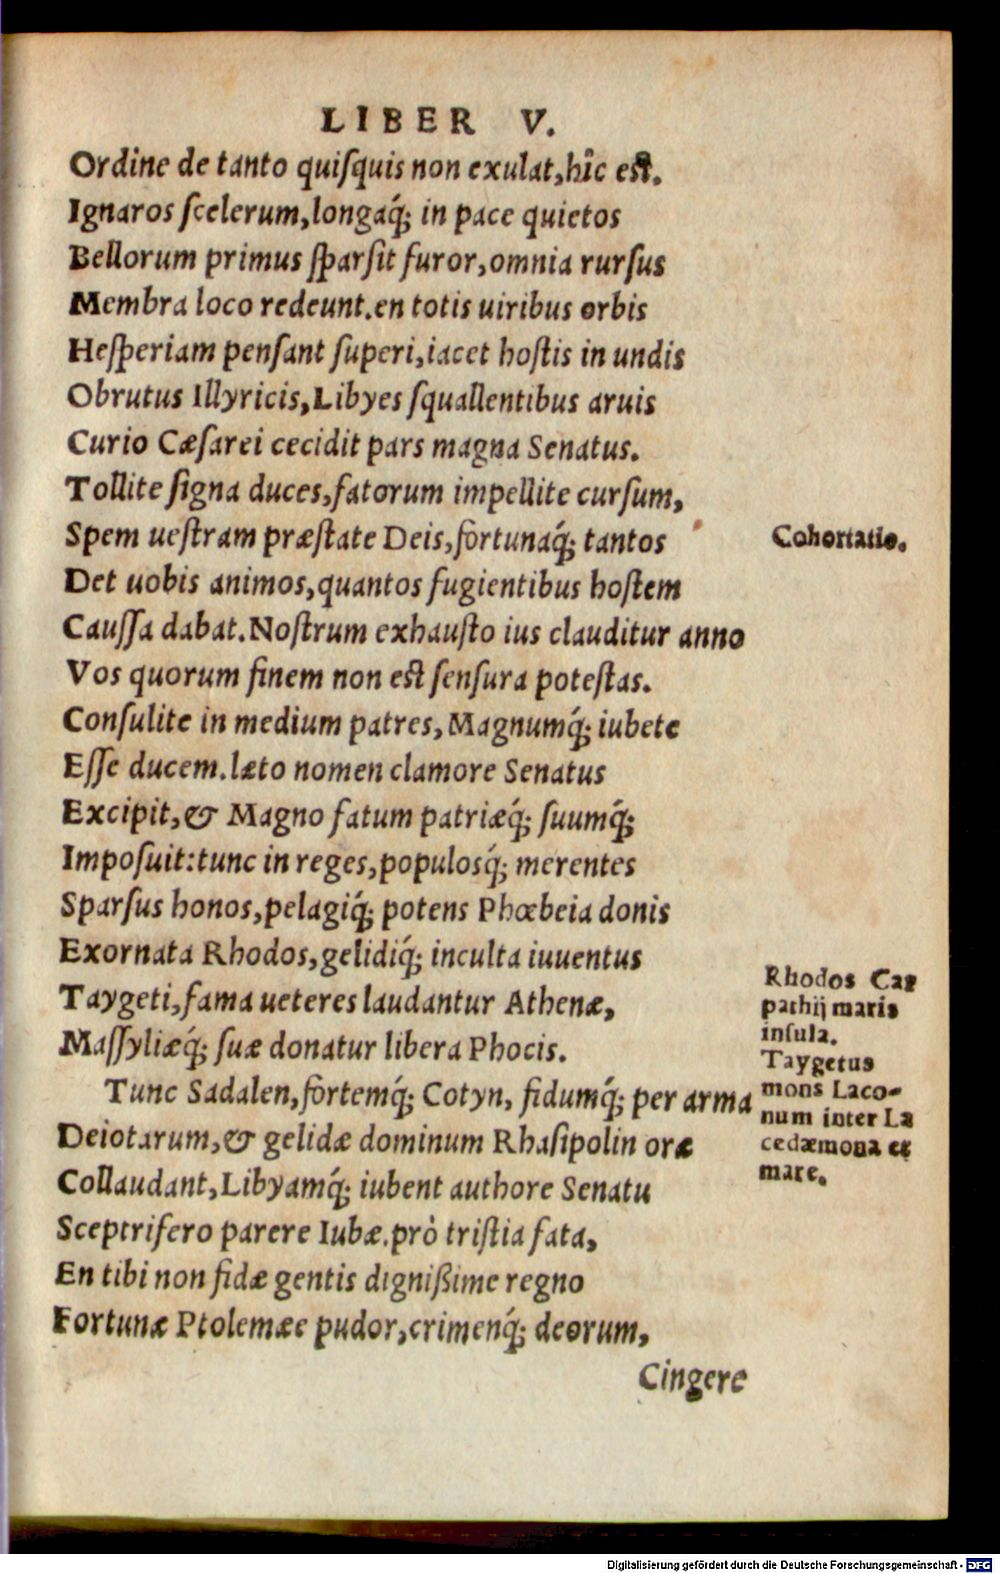 LIBER V.
Ordine de tanto quiſquis non exulat, hîc eſt.
Ignaros ſcelerum, longaq́; in pace quietos
Bellorum primus ſparſit furor, omnia rurſus
Membra loco redeunt. en totis uiribus orbis
Heſperiam penſant ſuperi, iacet hoſtis in undis
Obrutus Illyricis, Libyes ſquallentibus aruis
Curio Cæſarei cecidit pars magna Senatus.
Tollite ſigna duces, fatorum impellite curſum,
Spem ueſtram præſtate Deis, fortunaq́; tantos
Cohortatio.
Det uobis animos, quantos fugientibus hoſtem
Cauſſa dabat. Noſtrum exhauſto ius clauditur anno
Vos quorum finem non eſt ſenſura poteſtas.
Conſulite in medium patres, Magnumq́; iubete
Eſſe ducem. læto nomen clamore Senatus
Excipit, & Magno fatum patriæq́; ſuumq́;
Impoſuit: tunc in reges, populosq́; merentes
Sparſus honos, pelagiq́; potens Phœbeia donis
Exornata Rhodos, gelidiq́; inculta iuuentus
Taygeti, fama ueteres laudantur Athenæ,
Maſſyliæq́; ſuæ donatur libera Phocis.
Rhodos Car
pathij maris
inſula.
Taygetus
mons Laco-
num inter La
cedæmona et
mare.
Tunc Sadalen, fortemq́; Cotyn, fidumq́; per arma
Deiotarum, & gelidæ dominum Rhaſipolin oræ
Collaudant, Libyamq́; iubent authore Senatu
Sceptrifero parere Iubæ. prò triſtia fata,
En tibi non fidæ gentis digniſsime regno
Fortunæ Ptolemæe pudor, crimenq́; deorum,
Cingere
Digitalisierung gefördert durch die Deutsche Forschungsgemeinschaft - DFG